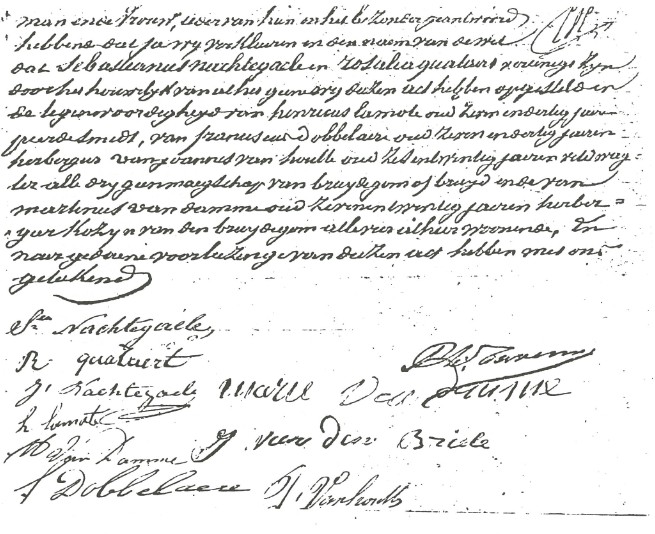 man ende vrouw, ieder van hun onhet bezonder geantwoord
hebbende dat ja wy verklaeren in den naem van de wet
dat Sebastianus nachtegaele en rosalia qualaert vereenigt zyn
door het houwelyk van al het gene wy dezen act hebben opgesteld in
de tegenwoordigheyd van henricus lamote oud zeven en dertig jaeren
peerdesmidt, van franciscus Dobbelaere oud zeven en dertig jaeren
herbergier van joannes van houtte oud zes en twintig jaeren veldwag=
ter alle dry gunmaegschap van bruydegom of bruyd ende van
martinus van damme oud zeven en twintig jaeren herber=
gier kozyn van den bruydegom alle vier alhier wonende, En
naer gedaene voorlezinge van dezen act hebben met ons
geteekend
Sen Nachtegaele,
R qualaert
J. Nachtegaele marie Van Damme
h lamote
M Van Damme J van den Briele
f Dobbelaere J. Vanhoutte